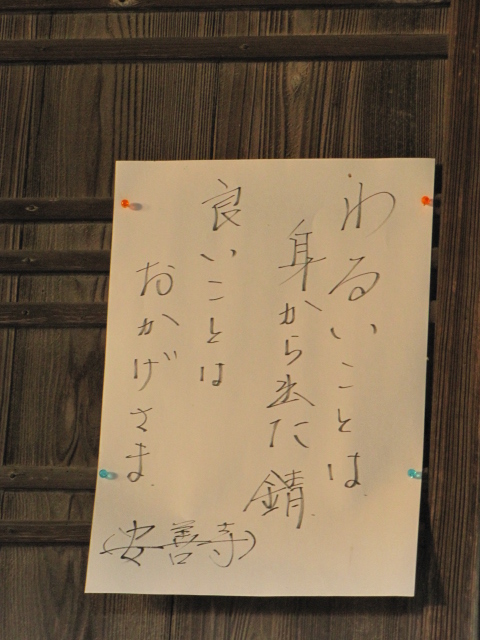 わるいことは
身から出た錆
良いことは
おかげさま
(安善寺)